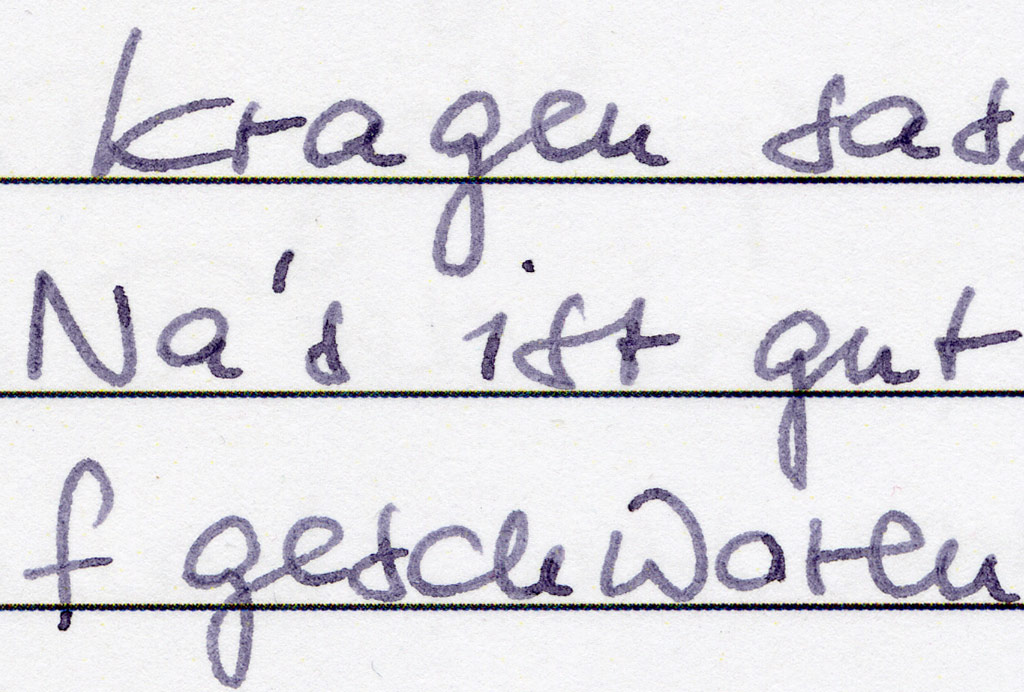 kragen sass
Na's ist gut
f geschworen